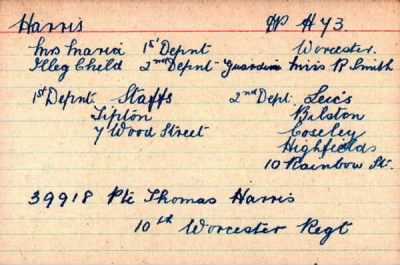 Harris W A 43.
Mrs Maria 1st Depnt Worcester.
Illeg Child 2nd Depnt Guardian Miss R Smith
1st Depnt. Staffs 2nd Dept.
Tipton Bilston
7 Wood Street Coseley
Highfields
10 Rainbow St.
39918 Pte Thomas Harris
10th Worcester Regt